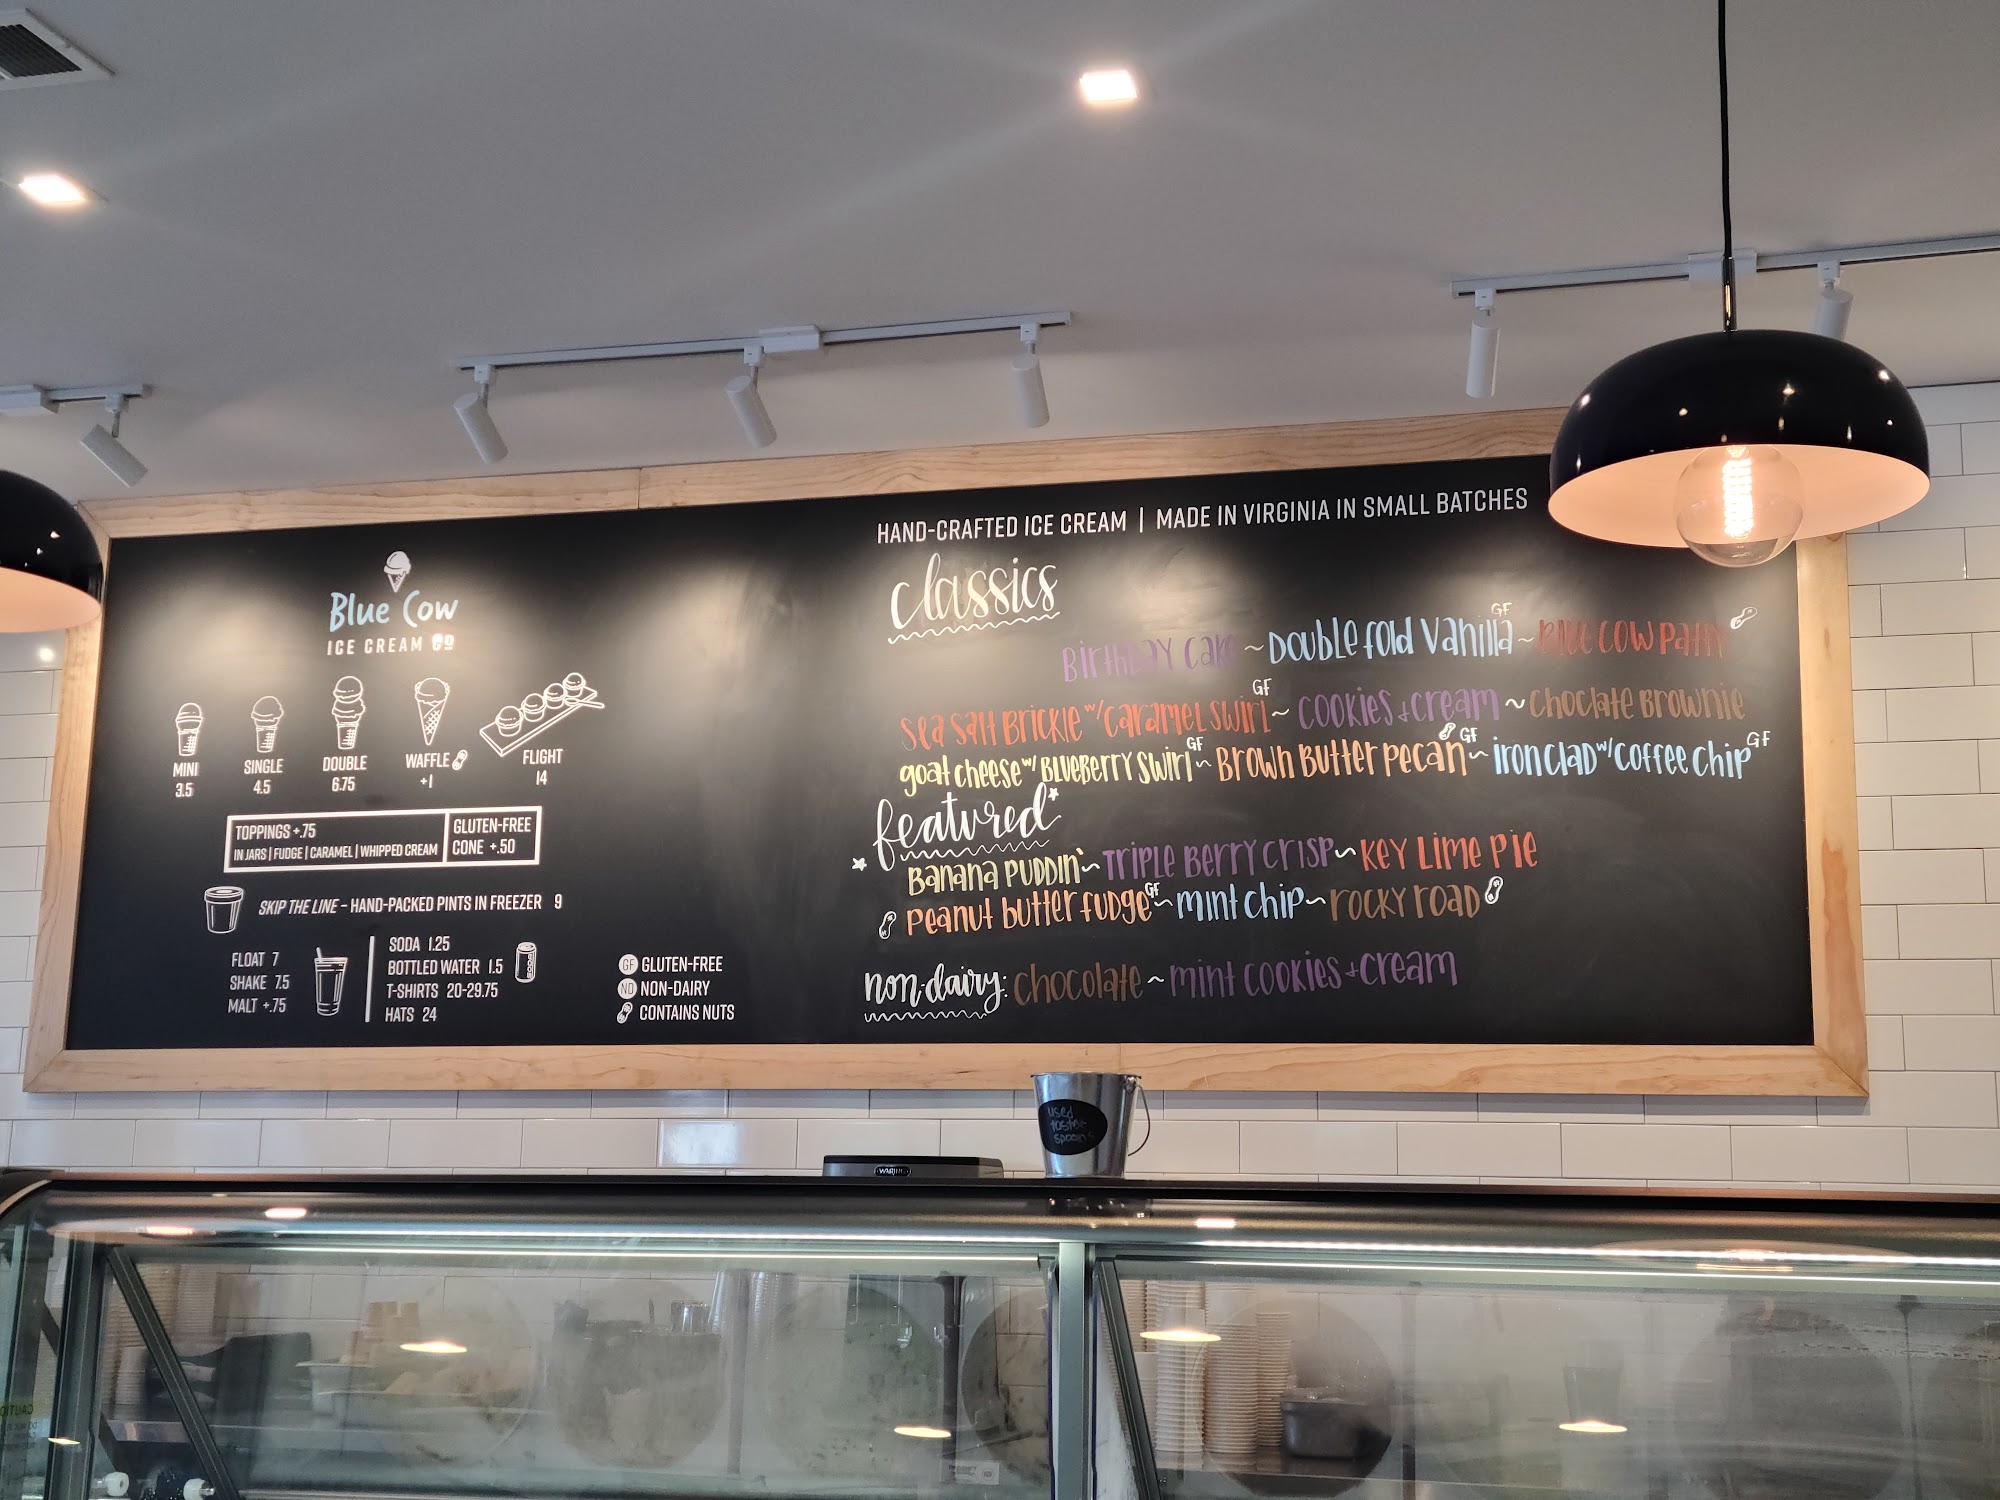 Blue Cow
ICE CREAM CO
MINI
3.5
SINGLE
4.5
DOUBLE
6.75
WAFFLE
+1
FLIGHT
14
TOPPINGS +.75
IN JARS | FUDGE | CARAMEL | WHIPPED CREAM
GLUTEN-FREE
CONE +.50
SKIP THE LINE – HAND-PACKED PINTS IN FREEZER 9
FLOAT 7
SHAKE 7.5
MALT +.75
SODA 1.25
BOTTLED WATER 1.5
T-SHIRTS 20-29.75
HATS 24
SODA
GF GLUTEN-FREE
ND NON-DAIRY
CONTAINS NUTS
HAND-CRAFTED ICE CREAM | MADE IN VIRGINIA IN SMALL BATCHES
classics
Birthday Cake ~ Double fold Vanilla GF ~ Blue Cow Patty
Sea Salt Brickle w/ Caramel Swirl GF ~ Cookies + Cream ~ Choclate Brownie
goat cheese w/ Blueberry Swirl GF ~ Brown Butter pecan GF ~ iron clad w/ Coffee Chip GF
featured
Banana Puddin' ~ Triple Berry Crisp ~ Key Lime Pie
Peanut butter fudge GF ~ mint chip ~ rocky road
non-dairy: chocolate ~ mint cookies + cream
used
taster
spoons
WARING
CAUTION